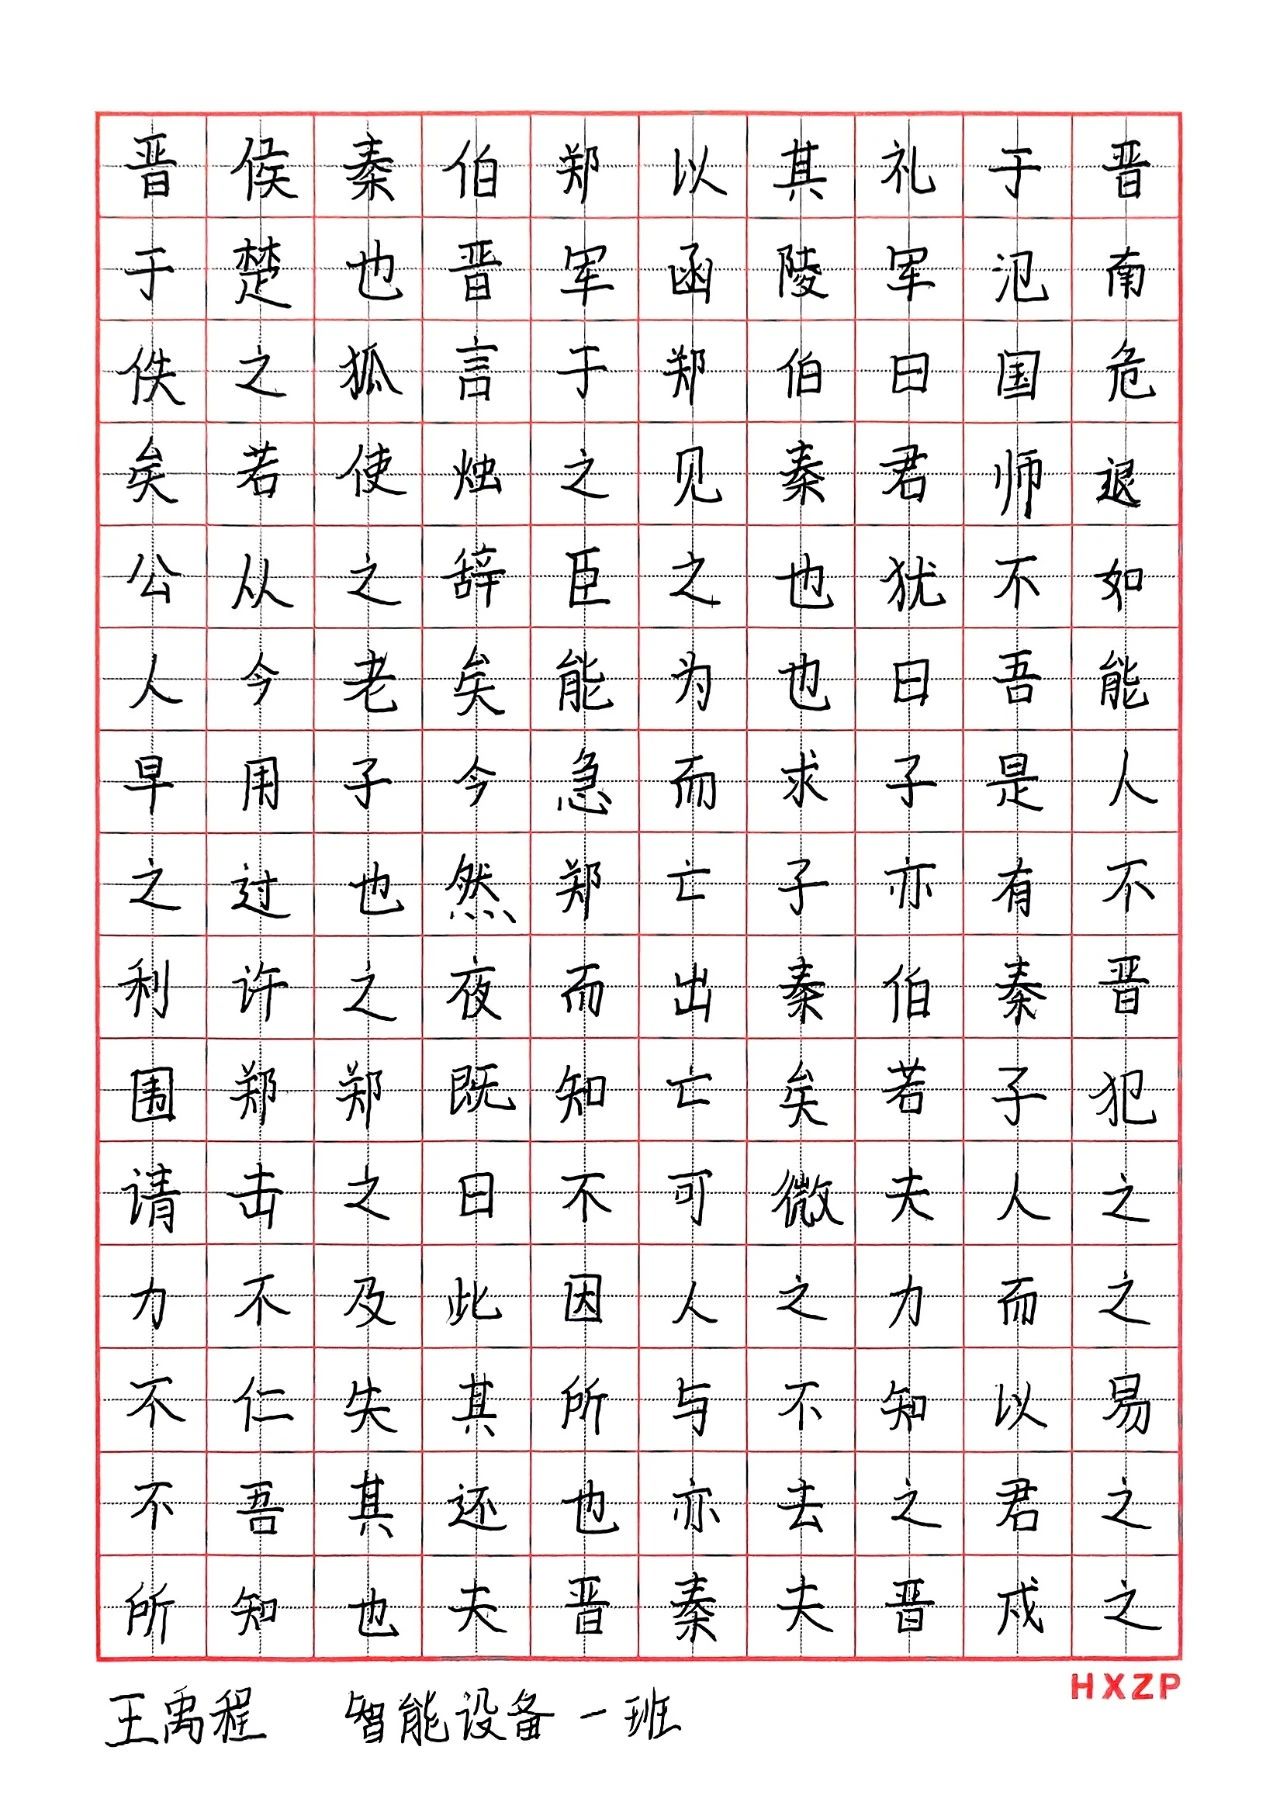 晋侯秦伯郑以其礼于晋
于楚也晋军函陵军氾南
佚之狐言于郑伯曰国危
矣若使烛之见秦君师退
公从之辞臣之也犹不如
人今老矣能为也曰吾能
早用子今急而求子是人
之过也然郑亡子亦有不
利许之夜而出秦伯秦晋
围郑郑既知亡矣若子犯
请击之曰不可微夫人之
力不及此因人之力而之
不仁失其所与不知以易
不吾其还也亦去之君之
所知也夫晋秦夫晋戍之
HXZP
王禹程 智能设备一班